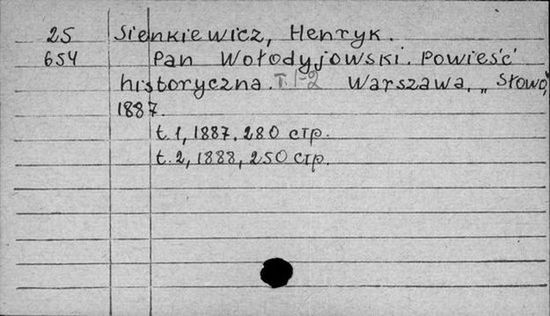 25 Sienkiewicz, Henryk.
654 Pan Wołodyjowski. Powieść
historyczna. T. 1-2 Warszawa, „Słowo",
1887.
t. 1, 1887. 280 стр.
t. 2, 1888, 250 стр.